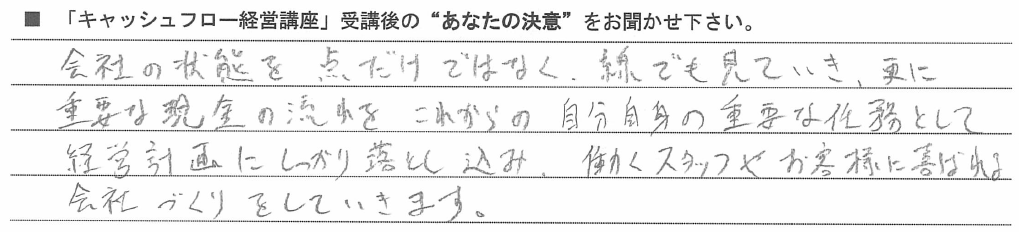 ■ 「キャッシュフロー経営講座」受講後の“あなたの決意”をお聞かせ下さい。
会社の状態を点だけではなく、線でも見ていき、更に
重要な現金の流れを これからの 自分自身の重要な任務として
経営計画にしっかり落とし込み、働くスタッフやお客様に喜ばれる
会社づくりをしていきます。